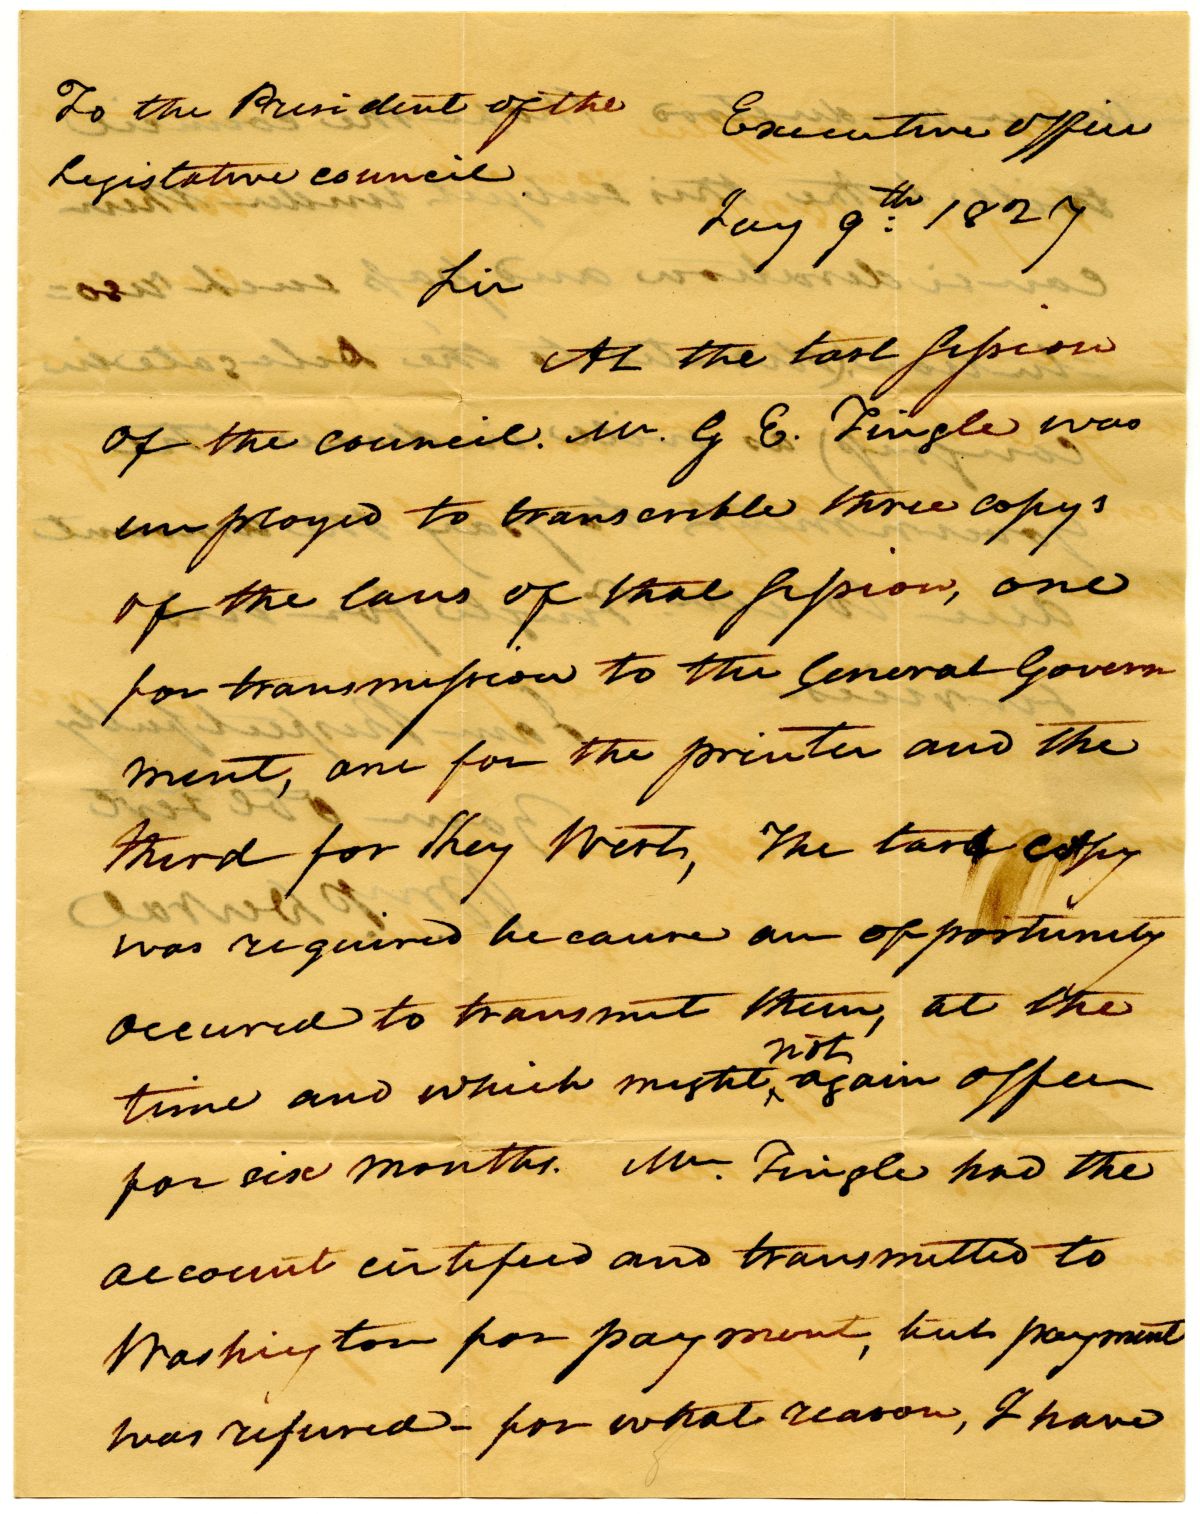 To the President of the
Legislative council
Executive office
Jay 9th 1827
Sir
At the last Session
of the council. Mr. G E. Tingle was
employed to transcrible three copys
of the laws of that Session, one
for transmission to the General Govern
ment, one for the printer and the
third for Key West, The last copy
was required because an opportunity
occured to transmit them, at the
time and which might not again offer
for six months. Mr. Tingle had the
account certifed and transmitted to
Washington for payment, but payment
was refused - for what reason, I have